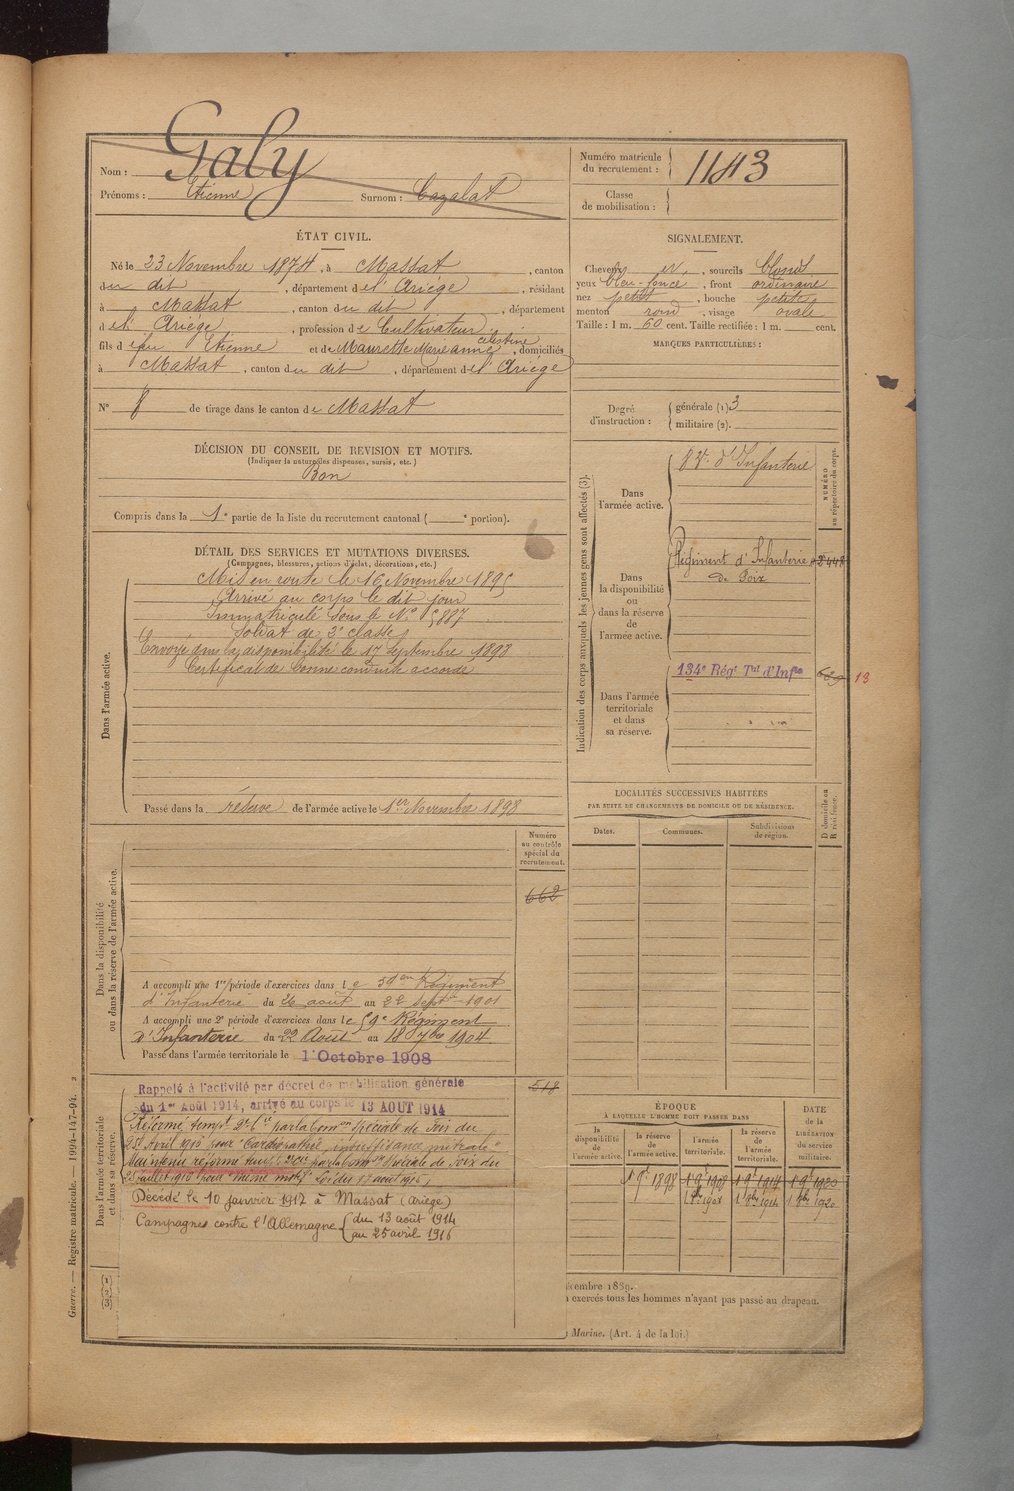 Galy
Nom :
Prénoms : Etienne Surnom : Cazalat
Numéro matricule
du recrutement : 1143
Classe
de mobilisation :
ÉTAT CIVIL.
Né le 23 Novembre 1874, à Massat, canton
du dit, département de l'Ariège, résidant
à Massat, canton du dit, département
de l'Ariège, profession de Cultivateur
fils de feu Etienne et de Maurette Marie anne célestine, domiciliés
à Massat, canton du dit, département de l'Ariège
N° 8 de tirage dans le canton de Massat
SIGNALEMENT.
Cheveux et, sourcils blonds
yeux bleu-foncé, front ordinaire
nez petit, bouche petite
menton rond, visage ovale
Taille : 1 m. 60 cent. Taille rectifiée : 1 m. cent.
MARQUES PARTICULIÈRES :
Degré
d'instruction : générale (1) 3
militaire (2).
DÉCISION DU CONSEIL DE REVISION ET MOTIFS.
(Indiquer la nature des dispenses, sursis, etc.)
Bon
Compris dans la 1e partie de la liste du recrutement cantonal ( e portion).
DÉTAIL DES SERVICES ET MUTATIONS DIVERSES.
(Campagnes, blessures, actions d'éclat, décorations, etc.)
Dans l'armée active.
Mis en route le 16 Novembre 1895
Arrivé au corps le dit jour
Immatriculé sous le N° 5887
Soldat de 2e classe
Envoyé dans la disponibilité le 17 septembre 1898
Certificat de bonne conduite accordé
Passé dans la réserve de l'armée active le 1er Novembre 1898
Indication des corps auxquels les jeunes gens sont affectés (3).
NUMÉRO
au répertoire du corps.
Dans
l'armée active.
d'Infanterie
Dans
la disponibilité
ou
dans la réserve
de
l'armée active.
Régiment d'Infanterie
de Foix
Dans l'armée
territoriale
et dans
sa réserve.
134e Régt Tal d'Infie
13
LOCALITÉS SUCCESSIVES HABITÉES
PAR SUITE DE CHANGEMENTS DE DOMICILE OU DE RÉSIDENCE.
Dates. Communes. Subdivisions
de région.
D domicile ou
R résidence.
Dans la disponibilité
ou dans la réserve de l'armée active.
Numéro
au contrôle
spécial du
recrutement.
662
A accompli une 1re période d'exercices dans le 59eme Régiment
d'Infanterie du 26 août au 22 Septbre 1901
A accompli une 2e période d'exercices dans le 59e Régiment
d'Infanterie du 22 Août au 18 7bre 1904
Passé dans l'armée territoriale le 1 Octobre 1908
Dans l'armée territoriale
et dans sa réserve.
518
Rappelé à l'activité par décret de mobilisation générale
du 1er Août 1914, arrivé au corps le 13 AOUT 1914
Réformé tempt par la Comon Spéciale de Foix du
25 Avril 1916 pour "Cardiopathie, insuffisance mitrale"
Maintenu réformé par la Spéciale de Foix du
25 juillet 1916 pour même motif Loi du 17 août 1915
Décédé le 10 janvier 1917 à Massat (Ariège)
Campagnes contre l'Allemagne { du 13 août 1914
au 25 avril 1916
ÉPOQUE
À LAQUELLE L'HOMME DOIT PASSER DANS
la
disponibilité
de
l'armée active.
la réserve
de
l'armée active.
l'armée
territoriale.
la réserve
de
l'armée
territoriale.
DATE
de la
LIBÉRATION
du service
militaire.
1 9t 1898 1 9t 1908 1 9t 1914 1 9t 1920
1 1908 1 1914 1 1920
1
2
3
écembre 1889.
exercés tous les hommes n'ayant pas passé au drapeau.
Marine. (Art. 4 de la loi.)
Guerre. — Registre matricule. — 1994-147-94. 2